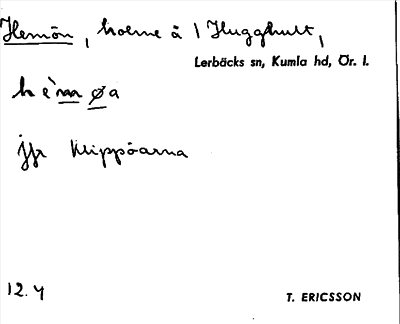 Hemön, holme å 1 Hugghult,
Lerbäcks sn, Kumla hd, Ör. l.
hèmøa
jfr Klippöarna
12.4
T. ERICSSON